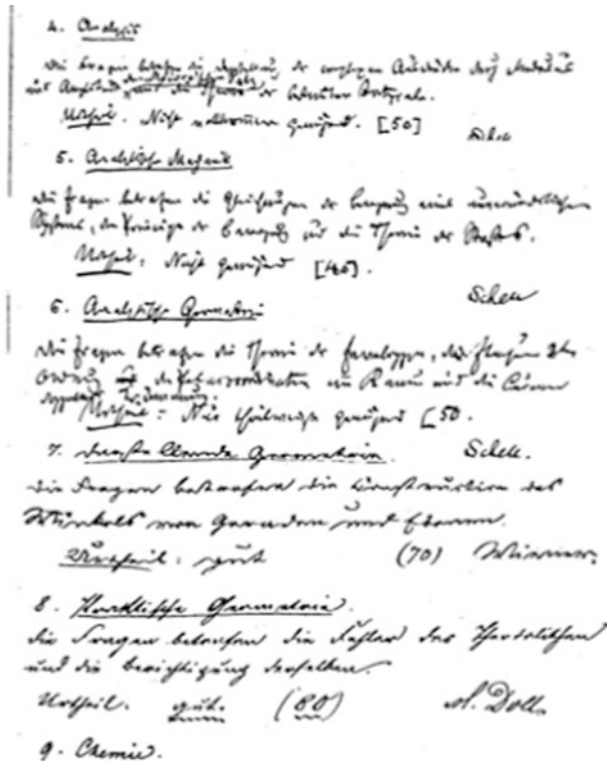 4. Analysis
Die Fragen betrafen die Darstellung der complexen Ausdrücke durch Modulus
und die Theorie der bestimmten Integrale.
Urtheil. Nicht vollkommen genügend. [50]
Schell
5. Analytische Mechanik
Die Fragen betrafen die Gleichungen der Bewegung eines unveränderlichen
Systems, die Principe der Bewegung und die Theorie der
Urtheil: Nicht genügend [40].
Schell
6. Analytische Geometrie
Die Fragen betrafen die Theorie der, die Flächen 2ter
Ordnung, die im Raum und die Curven
doppelter Krümmung.
Urtheil: Nur theilweise genügend [50.
7. Darstellende Geometrie. Schell.
Die Fragen betrafen die Construction des
Winkels von Geraden und Ebenen.
Urtheil: gut (70) Wiener.
8. Praktische Geometrie.
Die Fragen betrafen die Fehler des Theodolithen
und die Berichtigung derselben.
Urtheil. gut. (80) M. Doll.
9. Chemie.